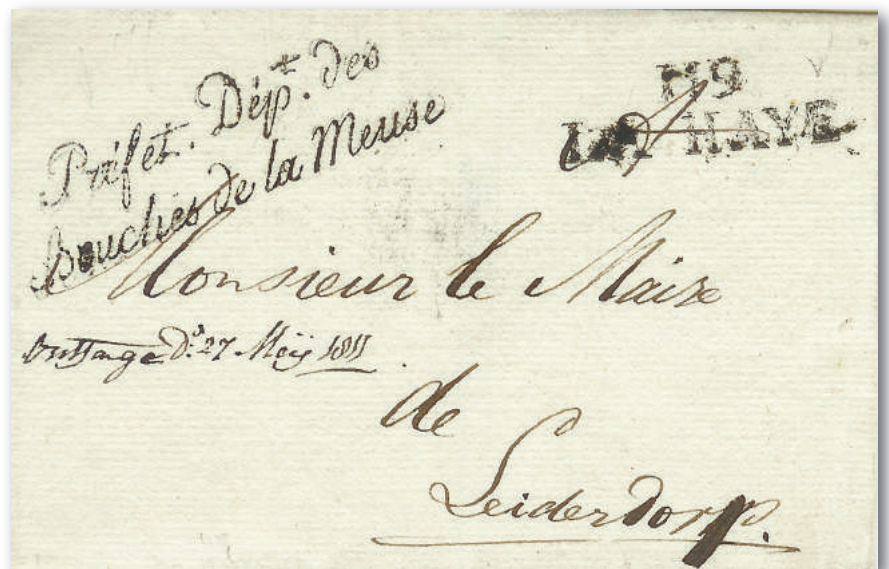 Préfet. Dépt. des
Bouches de la Meuse
119
LA HAYE
Monsieur le Maire
Ontfange Do. 27 Meij 1811
de
Leiderdorp.